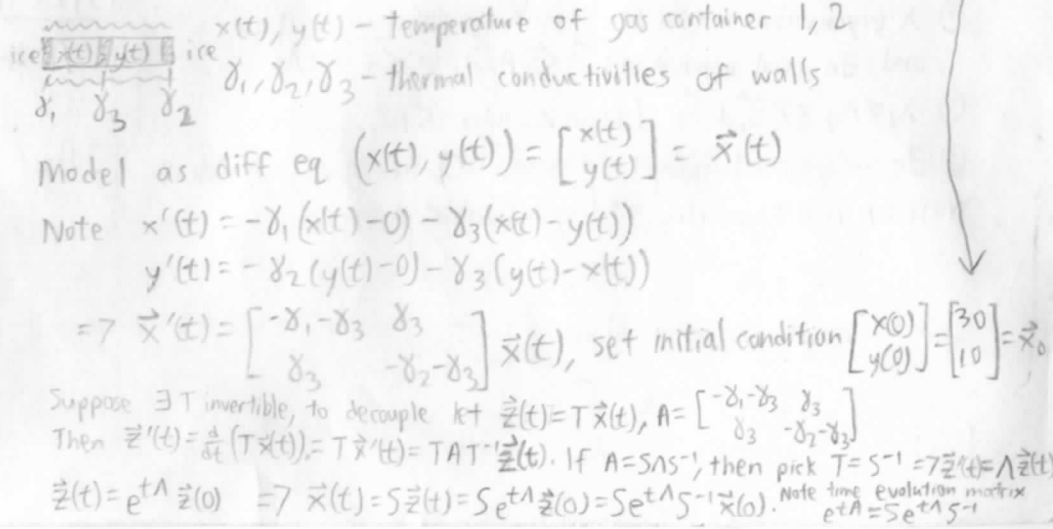 x(t), y(t) - temperature of gas container 1, 2
ice x(t) y(t) ice
γ₁, γ₂, γ₃ - thermal conductivities of walls
γ₁ γ₃ γ₂
Model as diff eq (x(t), y(t)) = [x(t) y(t)] = x⃗(t)
Note x'(t) = -γ₁(x(t)-0) - γ₃(x(t)-y(t))
y'(t) = -γ₂(y(t)-0) - γ₃(y(t)-x(t))
=> x⃗'(t) = [-γ₁-γ₃ γ₃; γ₃ -γ₂-γ₃] x⃗(t), set initial condition [x(0) y(0)] = [30 10] = x⃗₀
Suppose ∃ T invertible, to decouple let z⃗(t) = Tx⃗(t), A = [-γ₁-γ₃ γ₃; γ₃ -γ₂-γ₃]
Then z⃗'(t) = d/dt (Tx⃗(t)) = Tx⃗'(t) = TAT⁻¹z⃗(t). If A=SΛS⁻¹, then pick T=S⁻¹ => z⃗'(t)=Λz⃗(t)
z⃗(t) = e^{tΛ} z⃗(0) => x⃗(t) = Sz⃗(t) = Se^{tΛ}z⃗(0) = Se^{tΛ}S⁻¹x⃗(0). Note time evolution matrix
e^{tA} = Se^{tΛ}S⁻¹